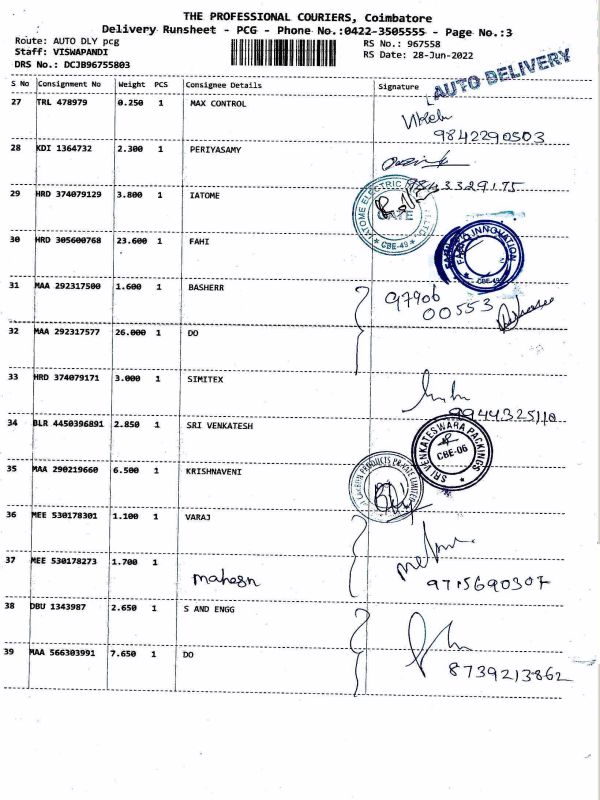 THE PROFESSIONAL COURIERS, Coimbatore
Delivery Runsheet - PCG - Phone No.:0422-3505555 - Page No.:3
Route: AUTO DLY pcg
RS No.: 967558
Staff: VISWAPANDI
RS Date: 28-Jun-2022
DRS No.: DCJB96755803
AUTO DELIVERY
S No Consignment No Weight PCS Consignee Details Signature
27 TRL 478979 0.250 1 MAX CONTROL
9842290503
28 KDI 1364732 2.300 1 PERIYASAMY
9843329175
29 HRD 374079129 3.800 1 IATOME
IATOME ELECTRIC
GATE
CBE-49
30 HRD 305600768 23.600 1 FAHI
INNOVATION
CBE-49
31 MAA 292317500 1.600 1 BASHERR
97906
00553
32 MAA 292317577 26.000 1 DO
33 HRD 374079171 3.000 1 SIMITEX
9944325110
34 BLR 4450396891 2.850 1 SRI VENKATESH
SRI VENKATESWARA PACKINGS
CBE-06
35 MAA 290219660 6.500 1 KRISHNAVENI
PRODUCTS PRIVATE LIMITED
36 MEE 530178301 1.100 1 VARAJ
37 MEE 530178273 1.700 1
mahesh
9715690307
38 DBU 1343987 2.650 1 S AND ENGG
39 MAA 566303991 7.650 1 DO
8739213862